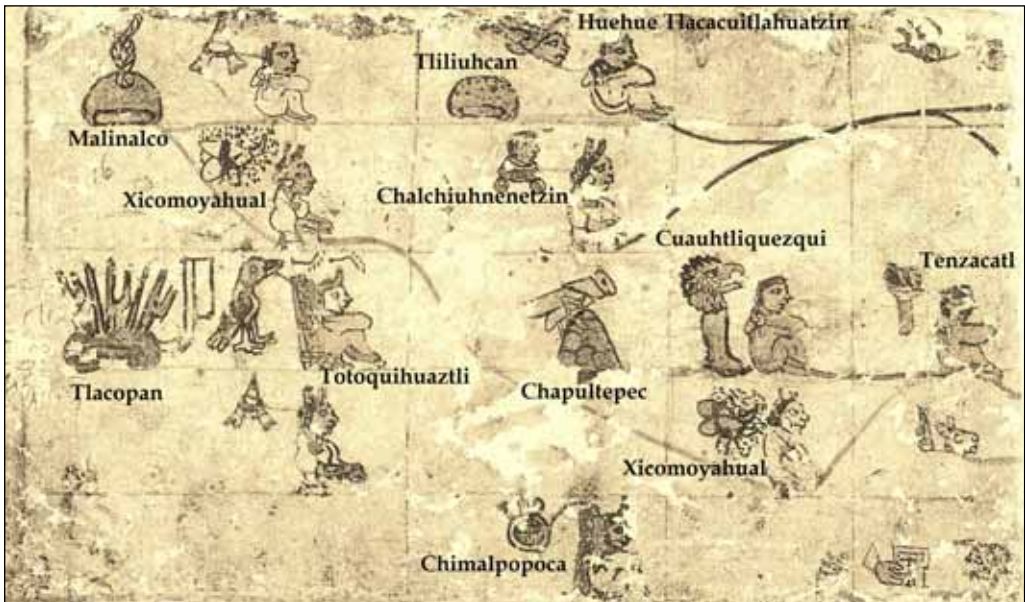 Huehue Tlacacuitlahuatzin
Tliliuhcan
Malinalco
Xicomoyahual
Chalchiuhnenetzin
Cuauhtliquezqui
Tenzacatl
Tlacopan
Totoquihuaztli
Chapultepec
Xicomoyahual
Chimalpopoca